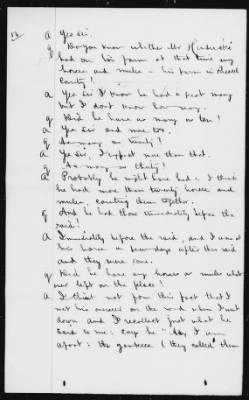 A Yes sir.
Q Do you know whether Mr
had on his farm at that time any
horses and mules - his farm in
County?
A Yes sir I know he had a great many
but I don't know how many.
Q Did he have as many as ten?
A Yes sir and more too.
Q As many as twenty?
A Yes sir, I expect more than that.
Q As many as thirty?
A Probably he might have had. I think
he had more than twenty horses and
mules, counting them together.
Q And he had those immediately before the
raid?
A Immediately before the raid, and I was at
his house a few days after this raid
and they were gone.
Q Did he have any horses or mules that
were left on the place?
A I think not from this fact that I
met his overseer on the road when I went
down and I recollect just what he
said to me: says he "
afoot: the yankees (they called them